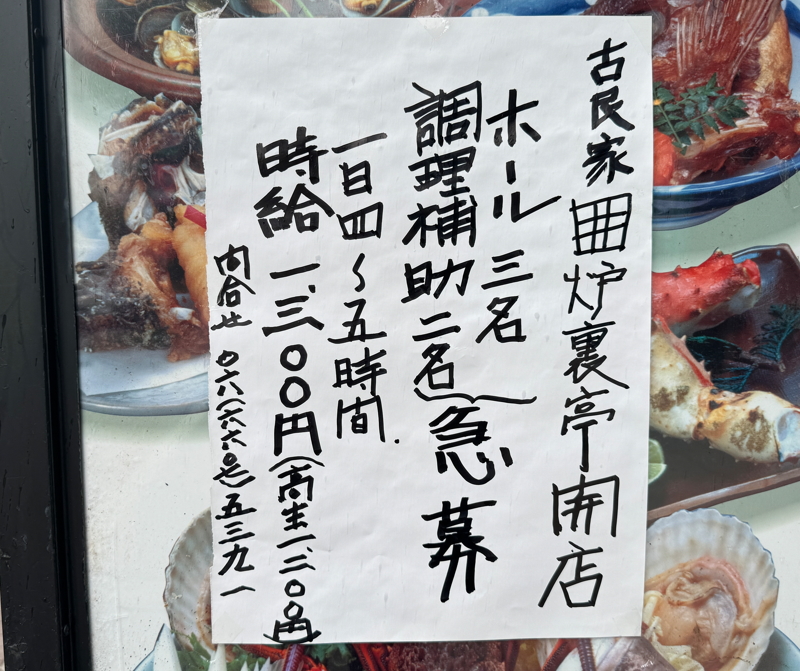 古民家囲炉裏亭開店
ホール 三名
調理補助二名 急募
一日四〜五時間.
時給 一、三〇〇円(高生一、二〇〇円)
問合せ 〇六(六六〇 )五三九一